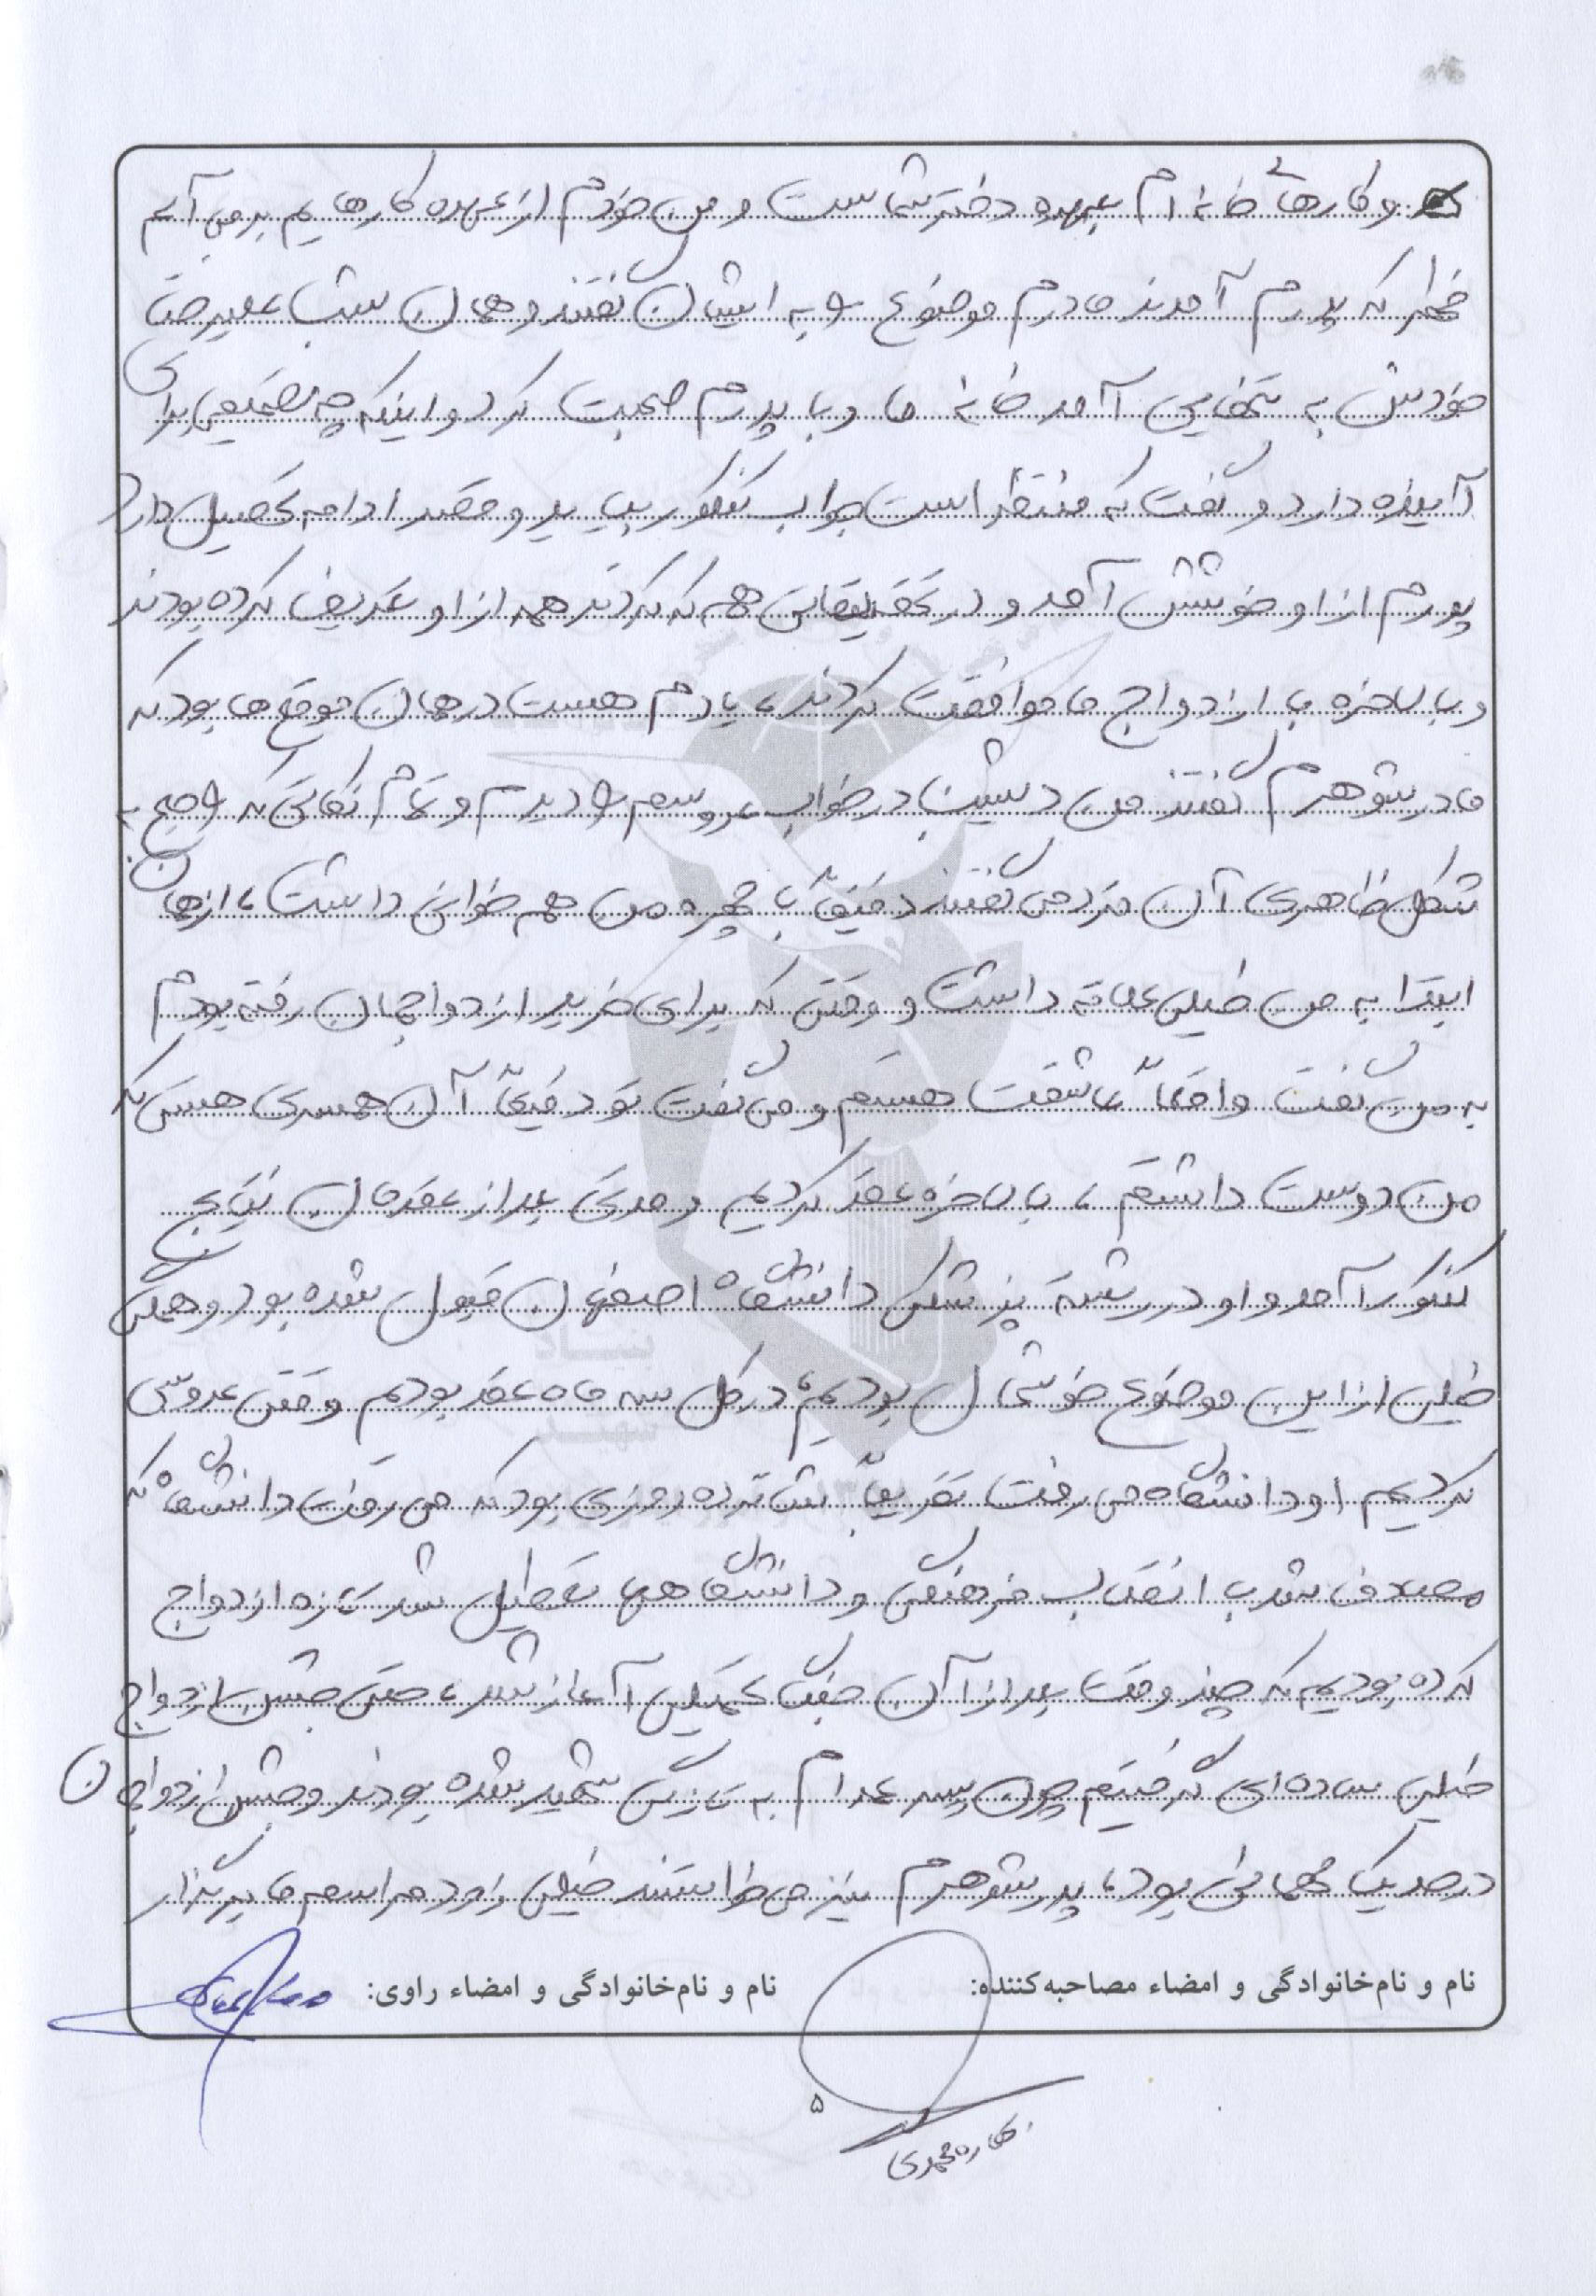 و کارهای خانه ام بعهده دختر شماست و من خودم از عهده کارهایم برمی آیم
ظهر که پدرم آمدند مادرم موضوع و به ایشان گفتند و همان شب علیرضا
خودش به تنهایی آمد خانه ما و با پدرم صحبت کرد و اینکه چه تصمیمی برای
آینده دارد و گفت که منتظر است جواب کنکور بیاید و قصد ادامه تحصیل دارد
پدرم از او خوشش آمد و در تحقیقاتی هم که کردند همه از او تعریف کرده بودند
و بالاخره با ازدواج ما موافقت کردند، یادم هست در همان موقع ها بود که
مادر شوهرم گفتند من دیشب در خواب عروسم و دیدم و تمام نکاتی که راجع به
شکل ظاهری آن فرد می گفتند دقیقاً با چهره من هم خوانی داشت، از همان
ابتدا به من خیلی علاقه داشت و وقتی که برای خرید ازدواجمان رفته بودیم
به من گفت واقعاً عاشقت هستم و می گفت تو دقیقاً آن همسری هستی که
من دوست داشتم، بالاخره عقد کردیم و مدتی بعد از عقدمان نتایج
کنکور آمد و او در رشته پزشکی دانشگاه اصفهان قبول شده بود و همگی
خیلی از این موضوع خوشحال بودیم، در کل سه ماه عقد بودیم وقتی عروسی
کردیم او دانشگاه می رفت تقریباً شانزده روزی بود که می رفت دانشگاه که
مصادف شد با انقلاب فرهنگی و دانشگاهها تعطیل شد تازه ازدواج
کرده بودیم که چند وقت بعد از آن جنگ تحمیلی آغاز شد، حتی جشن ازدواج
خیلی ساده ای گرفتیم چون پسر عمه ام به تازگی شهید شده بودند و جشن ازدواجمان
در حد یک مهمانی بود، پدر شوهرم نیز می خواستند خیلی زود مراسم ما برگزار
نام و نام‌خانوادگی و امضاء مصاحبه‌کننده: نام و نام‌خانوادگی و امضاء راوی:
۵